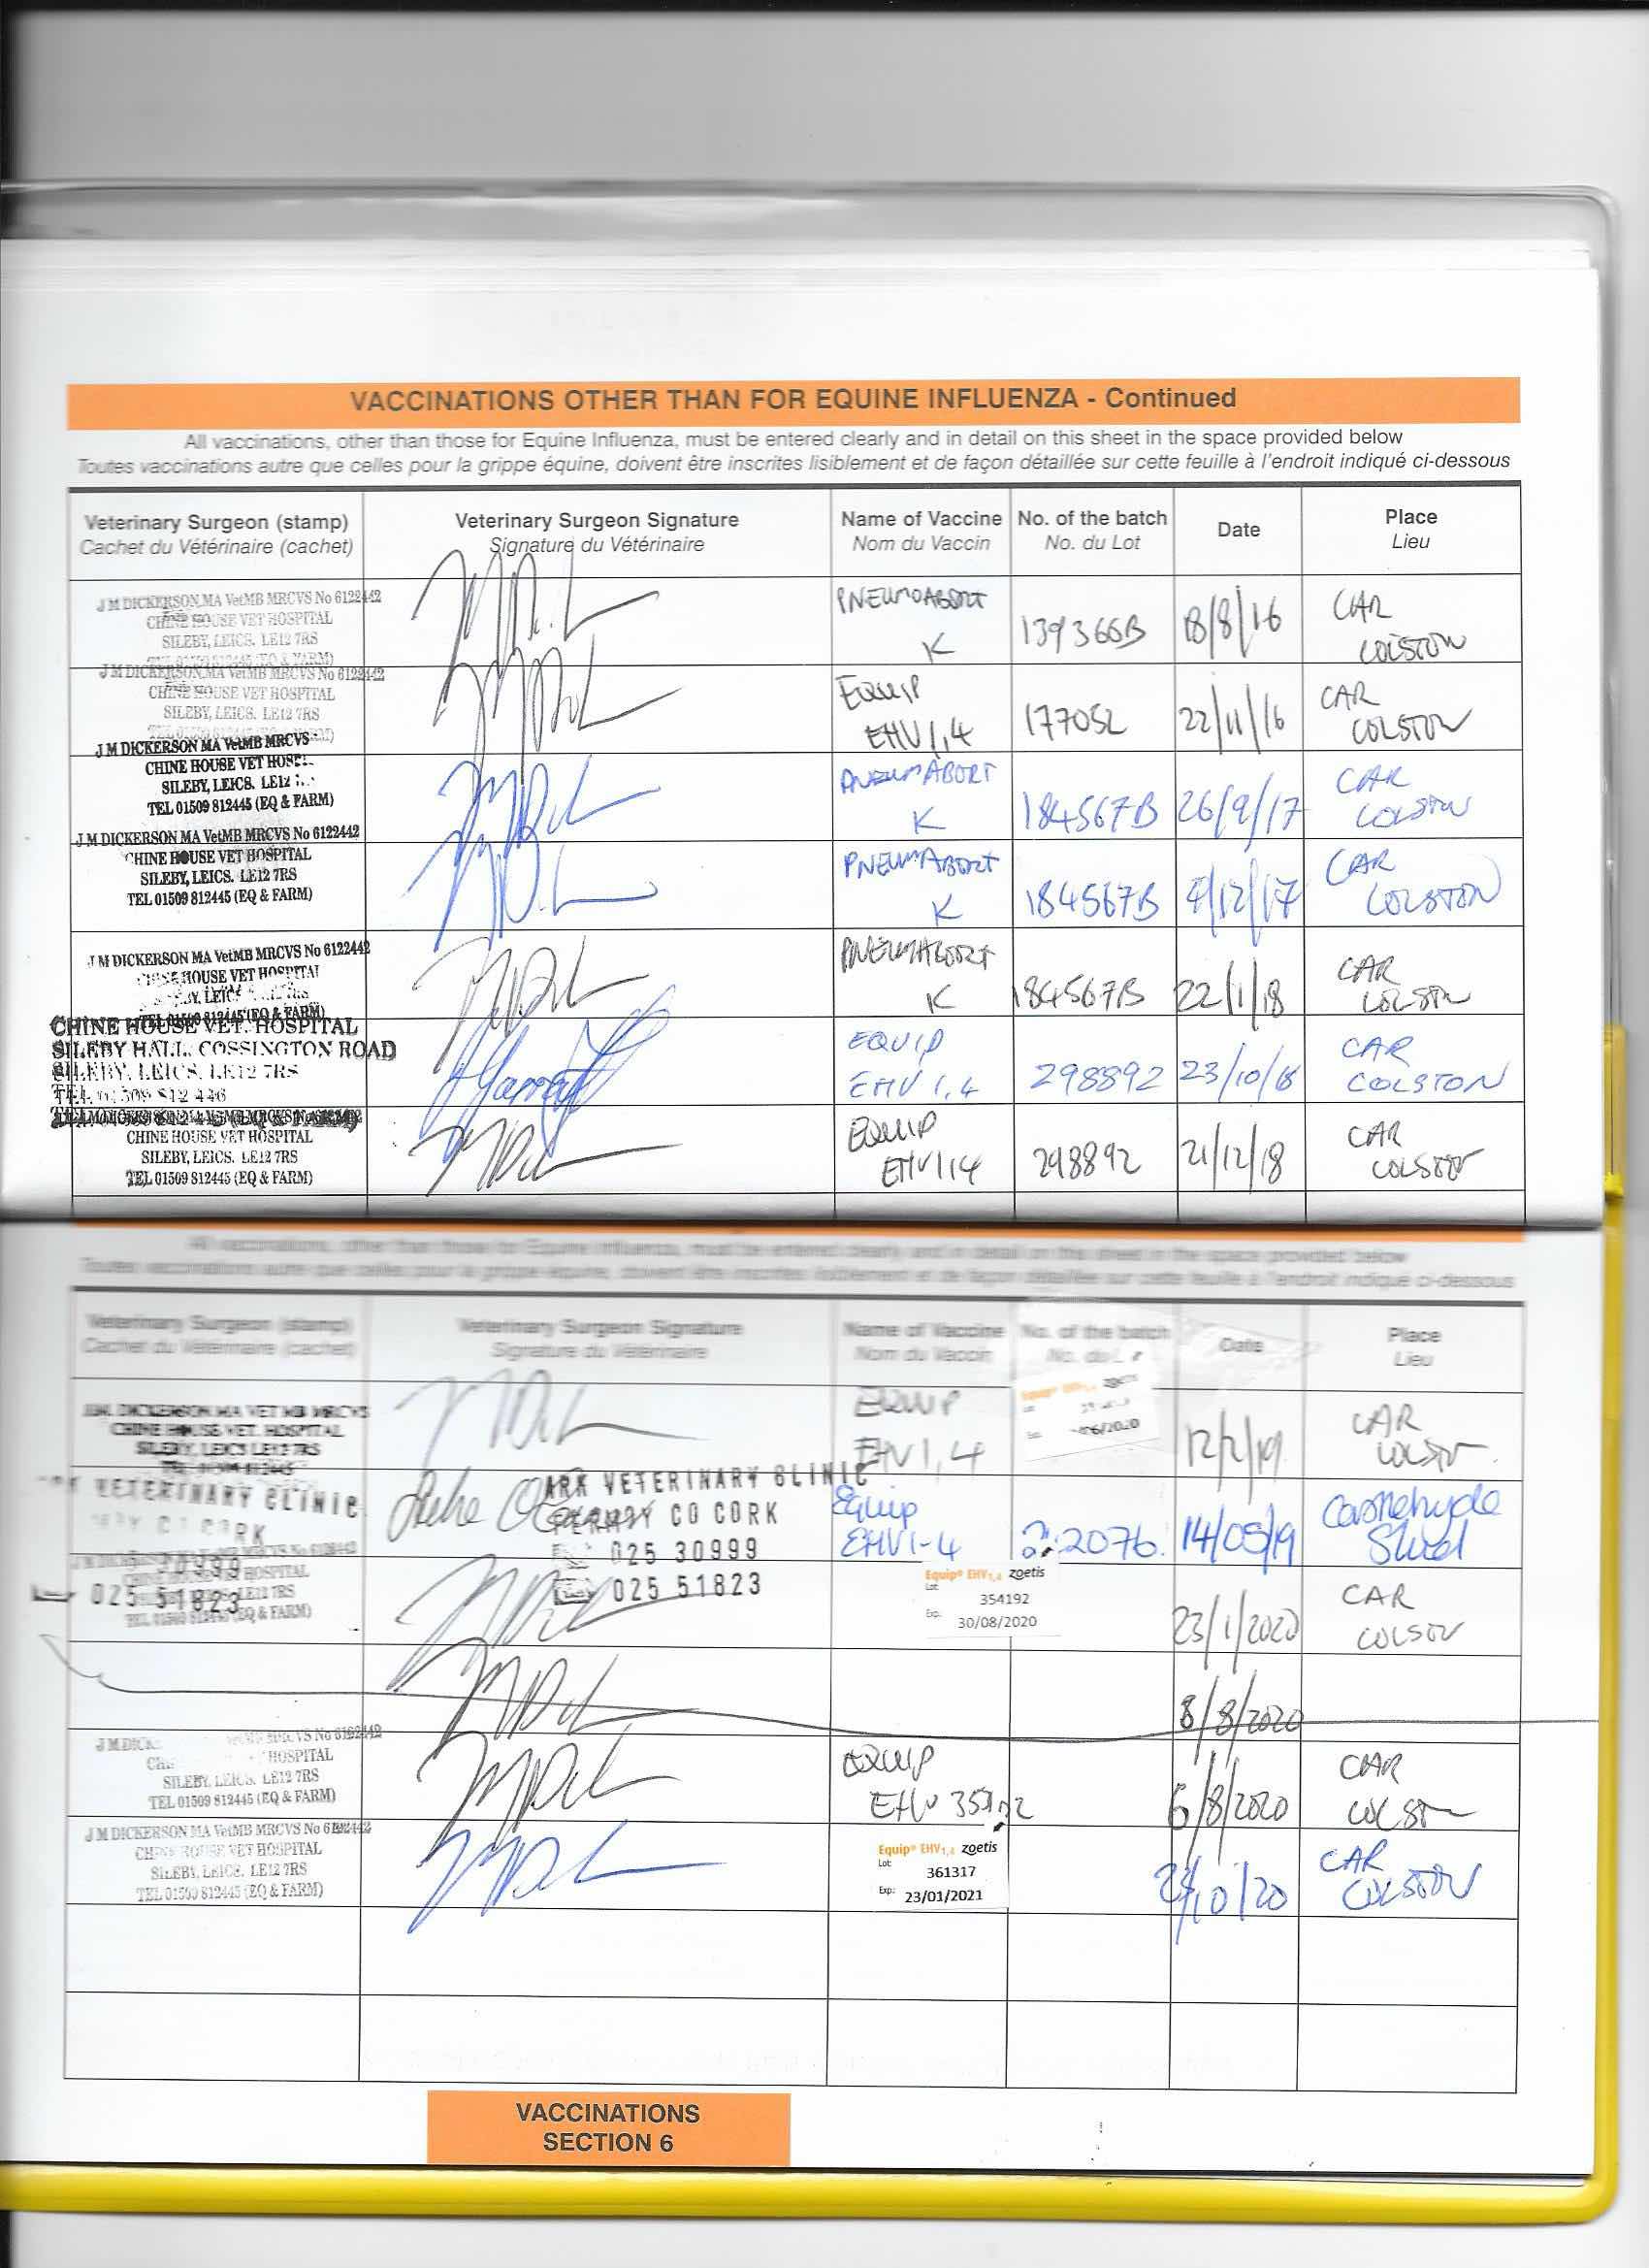 VACCINATIONS OTHER THAN FOR EQUINE INFLUENZA - Continued
All vaccinations, other than those for Equine Influenza, must be entered clearly and in detail on this sheet in the space provided below
Toutes vaccinations autre que celles pour la grippe équine, doivent être inscrites lisiblement et de façon détaillée sur cette feuille à l'endroit indiqué ci-dessous
Veterinary Surgeon (stamp) Veterinary Surgeon Signature Name of Vaccine No. of the batch Date Place
Cachet du Vétérinaire (cachet) Signature du Vétérinaire Nom du Vaccin No. du Lot Lieu
J M DICKERSON MA VetMB MRCVS No 6122442 PNEUMOABORT CAR
CHINE HOUSE VET HOSPITAL K 139366B 18/8/16 COLSTON
SILEBY, LEICS. LE12 7RS
TEL 01509 812445 (EQ & FARM)
J M DICKERSON MA VetMB MRCVS No 6122442 EQUIP CAR
CHINE HOUSE VET HOSPITAL EHV 1,4 177052 22/11/16 COLSTON
SILEBY, LEICS. LE12 7RS
J M DICKERSON MA VetMB MRCVS PNEUMABORT CAR
CHINE HOUSE VET HOSPITAL K 184567B 26/9/17 COLSTON
SILEBY, LEICS. LE12
TEL 01509 812445 (EQ & FARM)
J M DICKERSON MA VetMB MRCVS No 6122442 PNEUMABORT CAR
CHINE HOUSE VET HOSPITAL K 184567B /12/17 COLSTON
SILEBY, LEICS. LE12 7RS
TEL 01509 812445 (EQ & FARM)
J M DICKERSON MA VetMB MRCVS No 6122442 PNEUMABORT CAR
HOUSE VET HOSPITAL K 184567B 22/1/18 COLSTON
TEL 01509 812445 (EQ & FARM)
CHINE HOUSE VET. HOSPITAL EQUIP CAR
SILEBY HALL, COSSINGTON ROAD EHV 1,4 298892 23/10/18 COLSTON
SILEBY, LEICS. LE12 7RS
TEL 01509 812 446
EQUIP CAR
CHINE HOUSE VET HOSPITAL EHV1,4 298892 21/12/18 COLSTON
SILEBY, LEICS. LE12 7RS
TEL 01509 812445 (EQ & FARM)
All vaccinations, other than those for Equine Influenza, must be entered clearly and in detail on this sheet in the space provided below
Toutes vaccinations autre que celles pour la grippe équine, doivent être inscrites lisiblement et de façon détaillée sur cette feuille à l'endroit indiqué ci-dessous
Veterinary Surgeon (stamp) Veterinary Surgeon Signature Name of Vaccine No. of the batch Date Place
Cachet du Vétérinaire (cachet) Signature du Vétérinaire Nom du Vaccin No. du Lieu
J.M. DICKERSON MA VET MB MRCVS EQUIP Equip® EHV1,4 zoetis CAR
CHINE HOUSE VET. HOSPITAL EHV1,4 /06/2020 12/2/19 COLSTON
SILEBY, LEICS LE12 7RS
VETERINARY CLINIC ARK VETERINARY CLINIC Equip Castlehyde
CORK FERMOY CO CORK EHV1-4 2076 14/05/19 Stud
30999 025 30999
025 51823 025 51823
HOSPITAL Equip® EHV1,4 zoetis CAR
LE12 7RS Lot 354192 23/1/2020 COLSTON
(EQ & FARM) Exp. 30/08/2020
8/8/2020
J M DICK No 6122442 EQUIP CAR
HOSPITAL EHV 6/8/2020 COLSTON
SILEBY, LEICS. LE12 7RS
TEL 01509 812445 (EQ & FARM)
J M DICKERSON MA VetMB MRCVS No 6122442 Equip® EHV1,4 zoetis CAR
HOUSE VET HOSPITAL Lot: 361317 /10/20 COLSTON
SILEBY, LEICS. LE12 7RS Exp: 23/01/2021
TEL 01509 812445 (EQ & FARM)
VACCINATIONS
SECTION 6